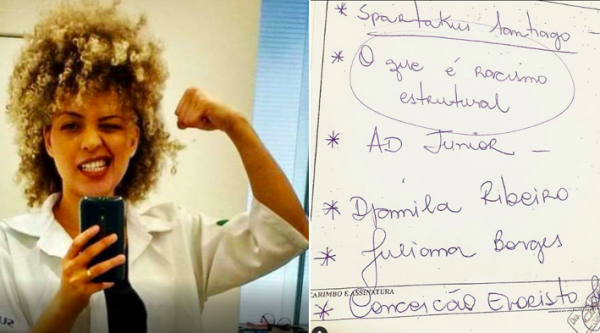 * Spartakus Santiago —
* O que é racismo
estrutural
* AD Junior —
* Djamila Ribeiro
* Juliana Borges
CARIMBO E ASSINATURA
* Conceição Evaristo